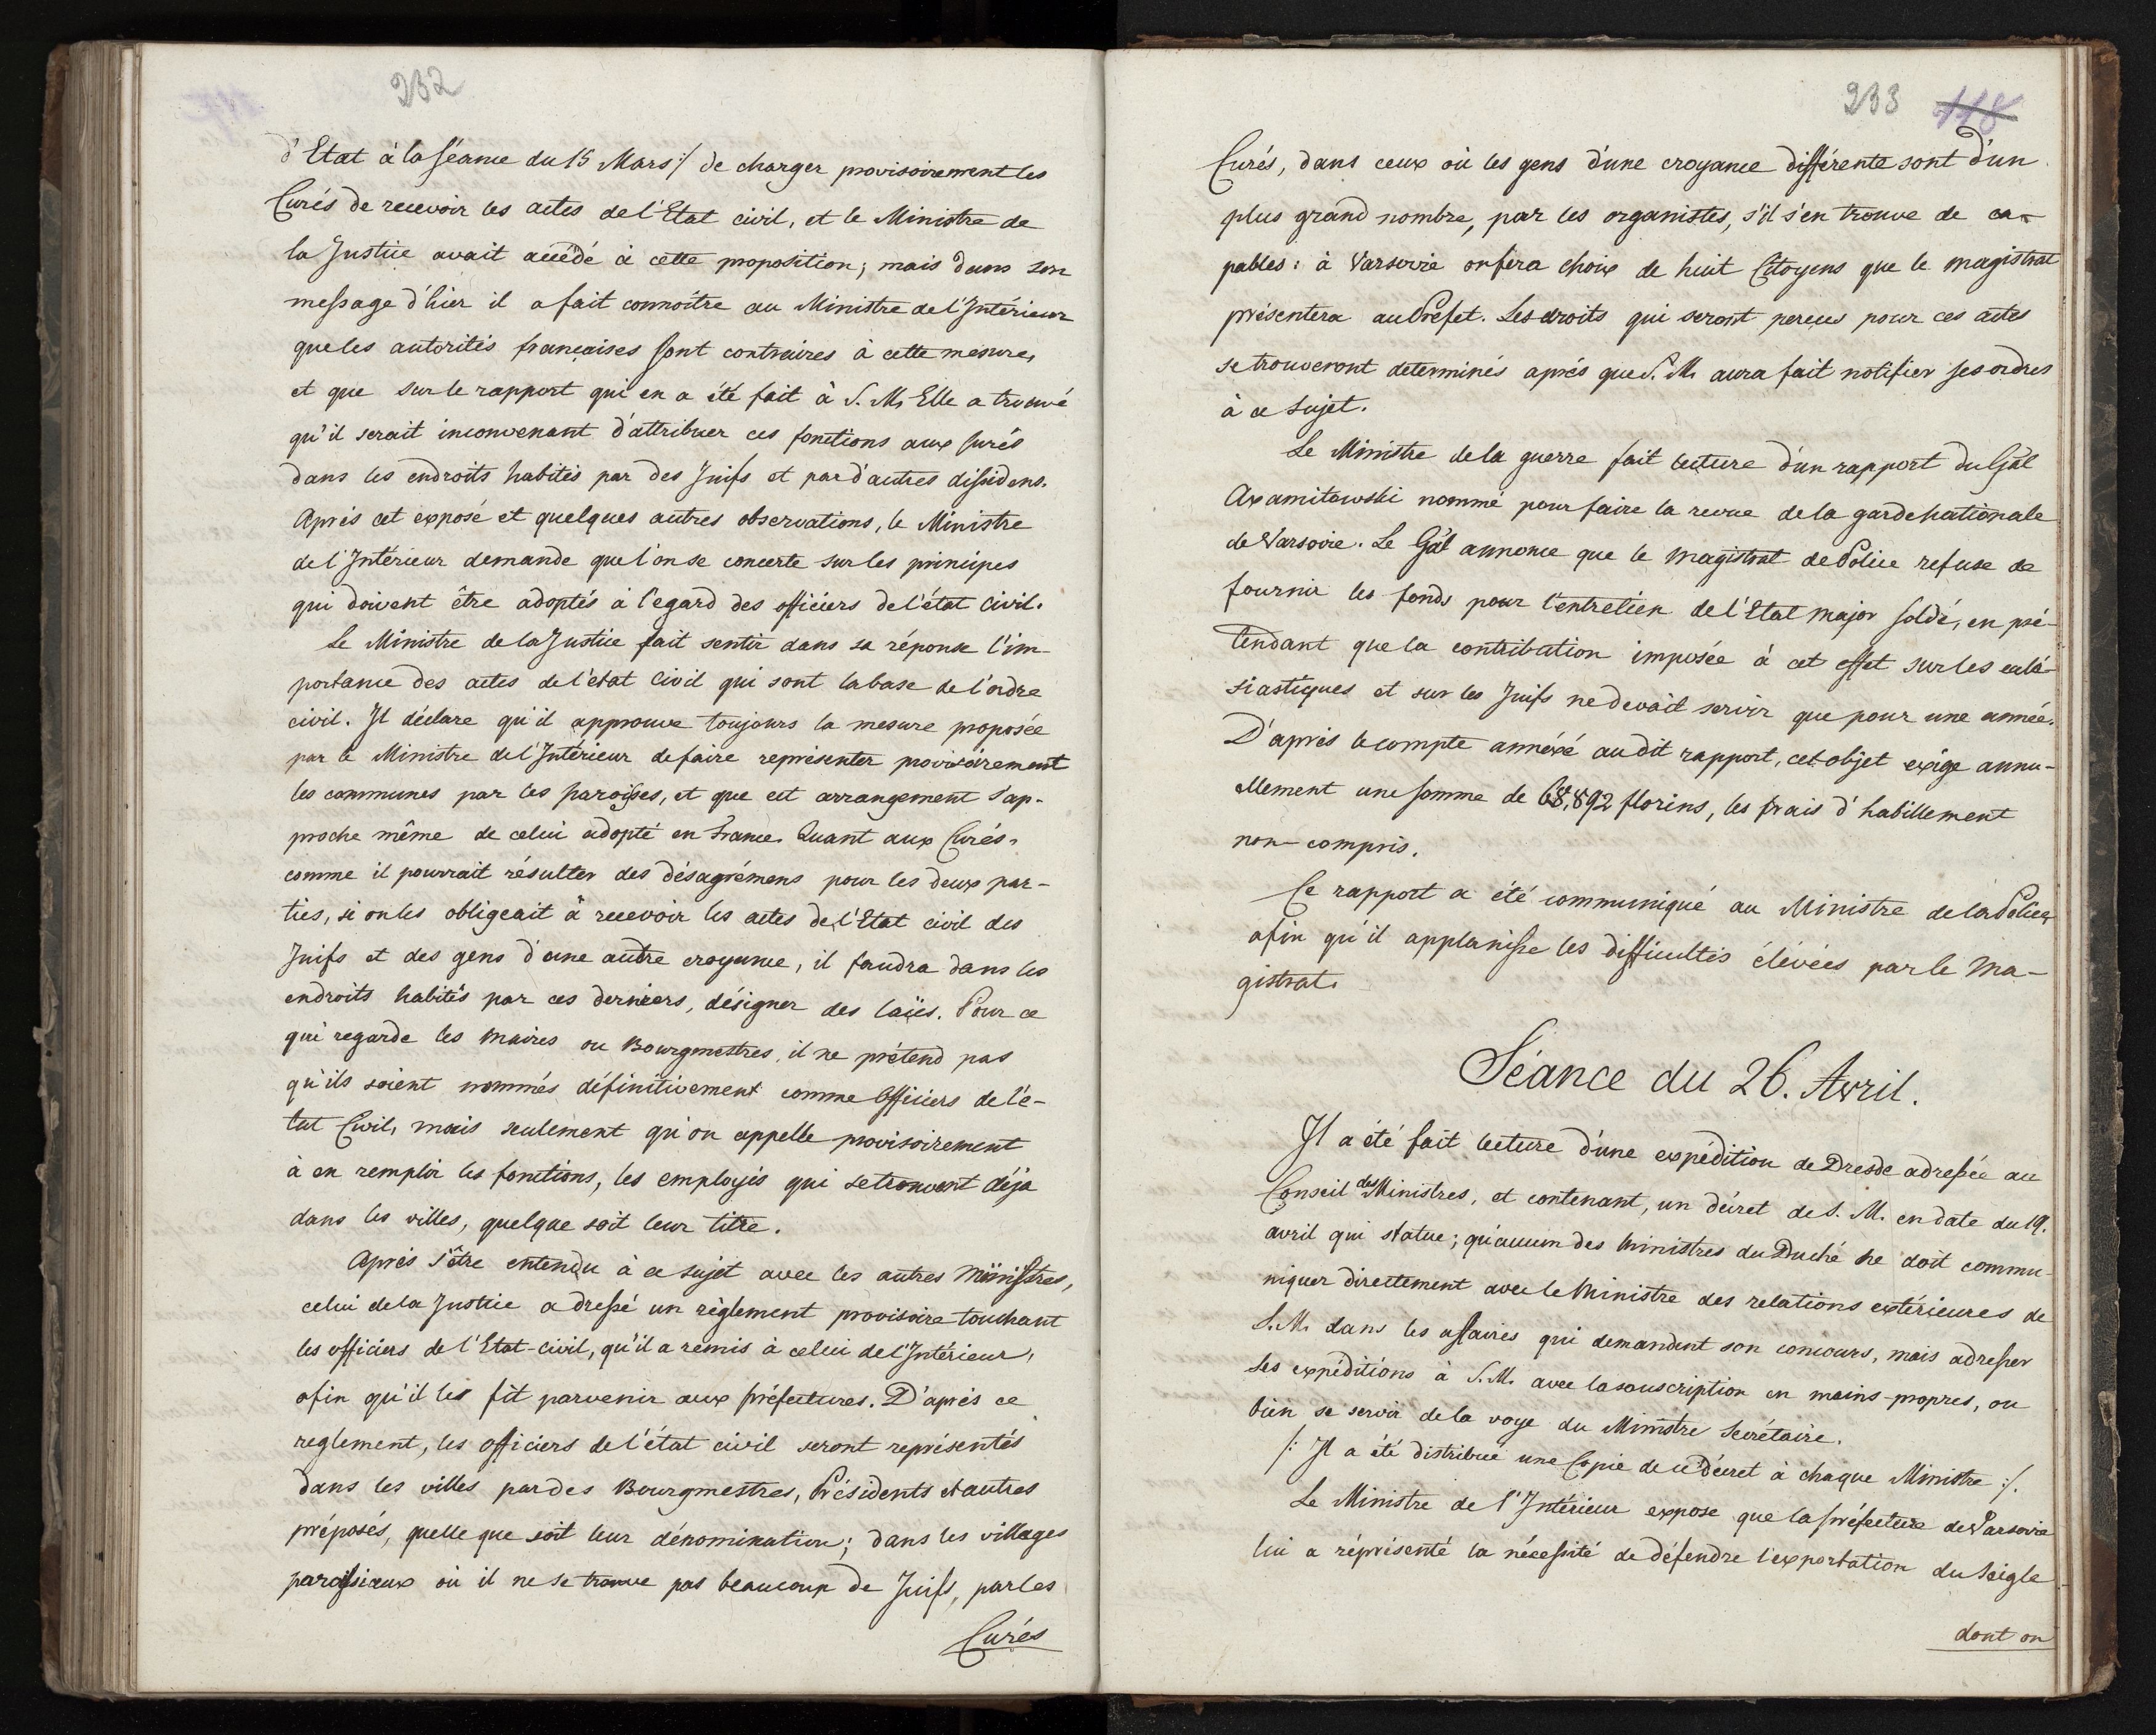 232
d'Etat à la séance du 15 Mars :/ de charger provisoirement les
Curés de recevoir les actes de l'Etat civil, et le Ministre de
la Justice avait accédé à cette proposition; mais dans son
message d'hier il a fait connoître au Ministre de l'Intérieur
que les autorités françaises sont contraires à cette mesure,
et que sur le rapport qui en a été fait à S. M. Elle a trouvé
qu'il serait inconvenant d'attribuer ces fonctions aux curés
dans les endroits habités par des Juifs et par d'autres dissidens.
Après cet exposé et quelques autres observations, le Ministre
de l'Intérieur demande que l'on se concerte sur les principes
qui doivent être adoptés à l'egard des officiers de l'état civil.
Le Ministre de la Justice fait sentir dans sa réponse l'im-
portance des actes de l'état civil qui sont la base de l'ordre
civil. Il déclare qu'il approuve toujours la mesure proposée
par le Ministre de l'Intérieur de faire représenter provisoirement
les communes par les paroisses, et que cet arrangement s'ap-
proche même de celui adopté en France. Quant aux Curés,
comme il pourrait résulter des désagrémens pour les deux par-
ties, si on les obligeait à recevoir les actes de l'Etat civil des
Juifs et des gens d'une autre croyance, il faudra dans les
endroits habités par ces derniers, désigner des laïcs. Pour ce
qui regarde les Maires ou Bourgmestres, il ne prétend pas
qu'ils soient nommés définitivement comme Officiers de l'é-
tat Civil, mais seulement qu'on appelle provisoirement
à en remplir les fonctions, les employés qui se trouvent déja
dans les villes, quelque soit leur titre.
Après s'être entendu à ce sujet avec les autres Ministres,
celui de la Justice a dressé un règlement provisoire touchant
les officiers de l'Etat-civil, qu'il a remis à celui de l'Intérieur,
afin qu'il les fît parvenir aux préfectures. D'après ce
reglement, les officiers de l'état civil seront représentés
dans les villes par des Bourgmestres, Présidents et autres
préposés, quelle que soit leur dénomination; dans les villages
paroissiaux où il ne se trouve pas beaucoup de Juifs, par les
Curés
233 118
Curés, dans ceux où les gens d'une croyance différente sont d'un
plus grand nombre, par les organistes, s'il s'en trouve de ca-
pables: à Varsovie on fera choix de huit Citoyens que le magistrat
présentera au Préfet. Les droits qui seront perçus pour ces actes
se trouveront determinés après que S. M. aura fait notifier ses ordres
à ce sujet.
Le Ministre de la guerre fait lecture d'un rapport du Gál
Axamitowski nommé pour faire la revue de la garde nationale
de Varsovie. Le Gál annonce que le magistrat de Police refuse de
fournir les fonds pour l'entretien de l'Etat major soldé, en pré-
tendant que la contribution imposée à cet effet sur les eclé-
siastiques et sur les Juifs ne devait servir que pour une année.
D'après le compte annéxé au dit rapport, cet objet exige annu-
ellement une somme de 68,892 florins, les frais d'habillement
non-compris.
Ce rapport a été communiqué au Ministre de la Police,
afin qu'il applanisse les difficultés élévées par le Ma-
gistrat.
Séance du 26. Avril.
Il a été fait lecture d'une expédition de Dresde adressée au
Conseil des Ministres, et contenant, un décret de S. M. en date du 19.
avril qui statue; qu'aucun des Ministres du Duché ne doit commu-
niquer directement avec le Ministre des relations extérieures de
S. M. dans les affaires qui demandent son concours, mais adresser
ses expéditions à S. M. avec la souscription en mains-propres, ou
bien se servir de la voye du Ministre Secrétaire.
/: Il a été distribué une Copie de ce décret à chaque Ministre :/.
Le Ministre de l'Intérieur expose que la préfecture de Varsovie
lui a répresenté la nécessité de défendre l'exportation du seigle
dont on